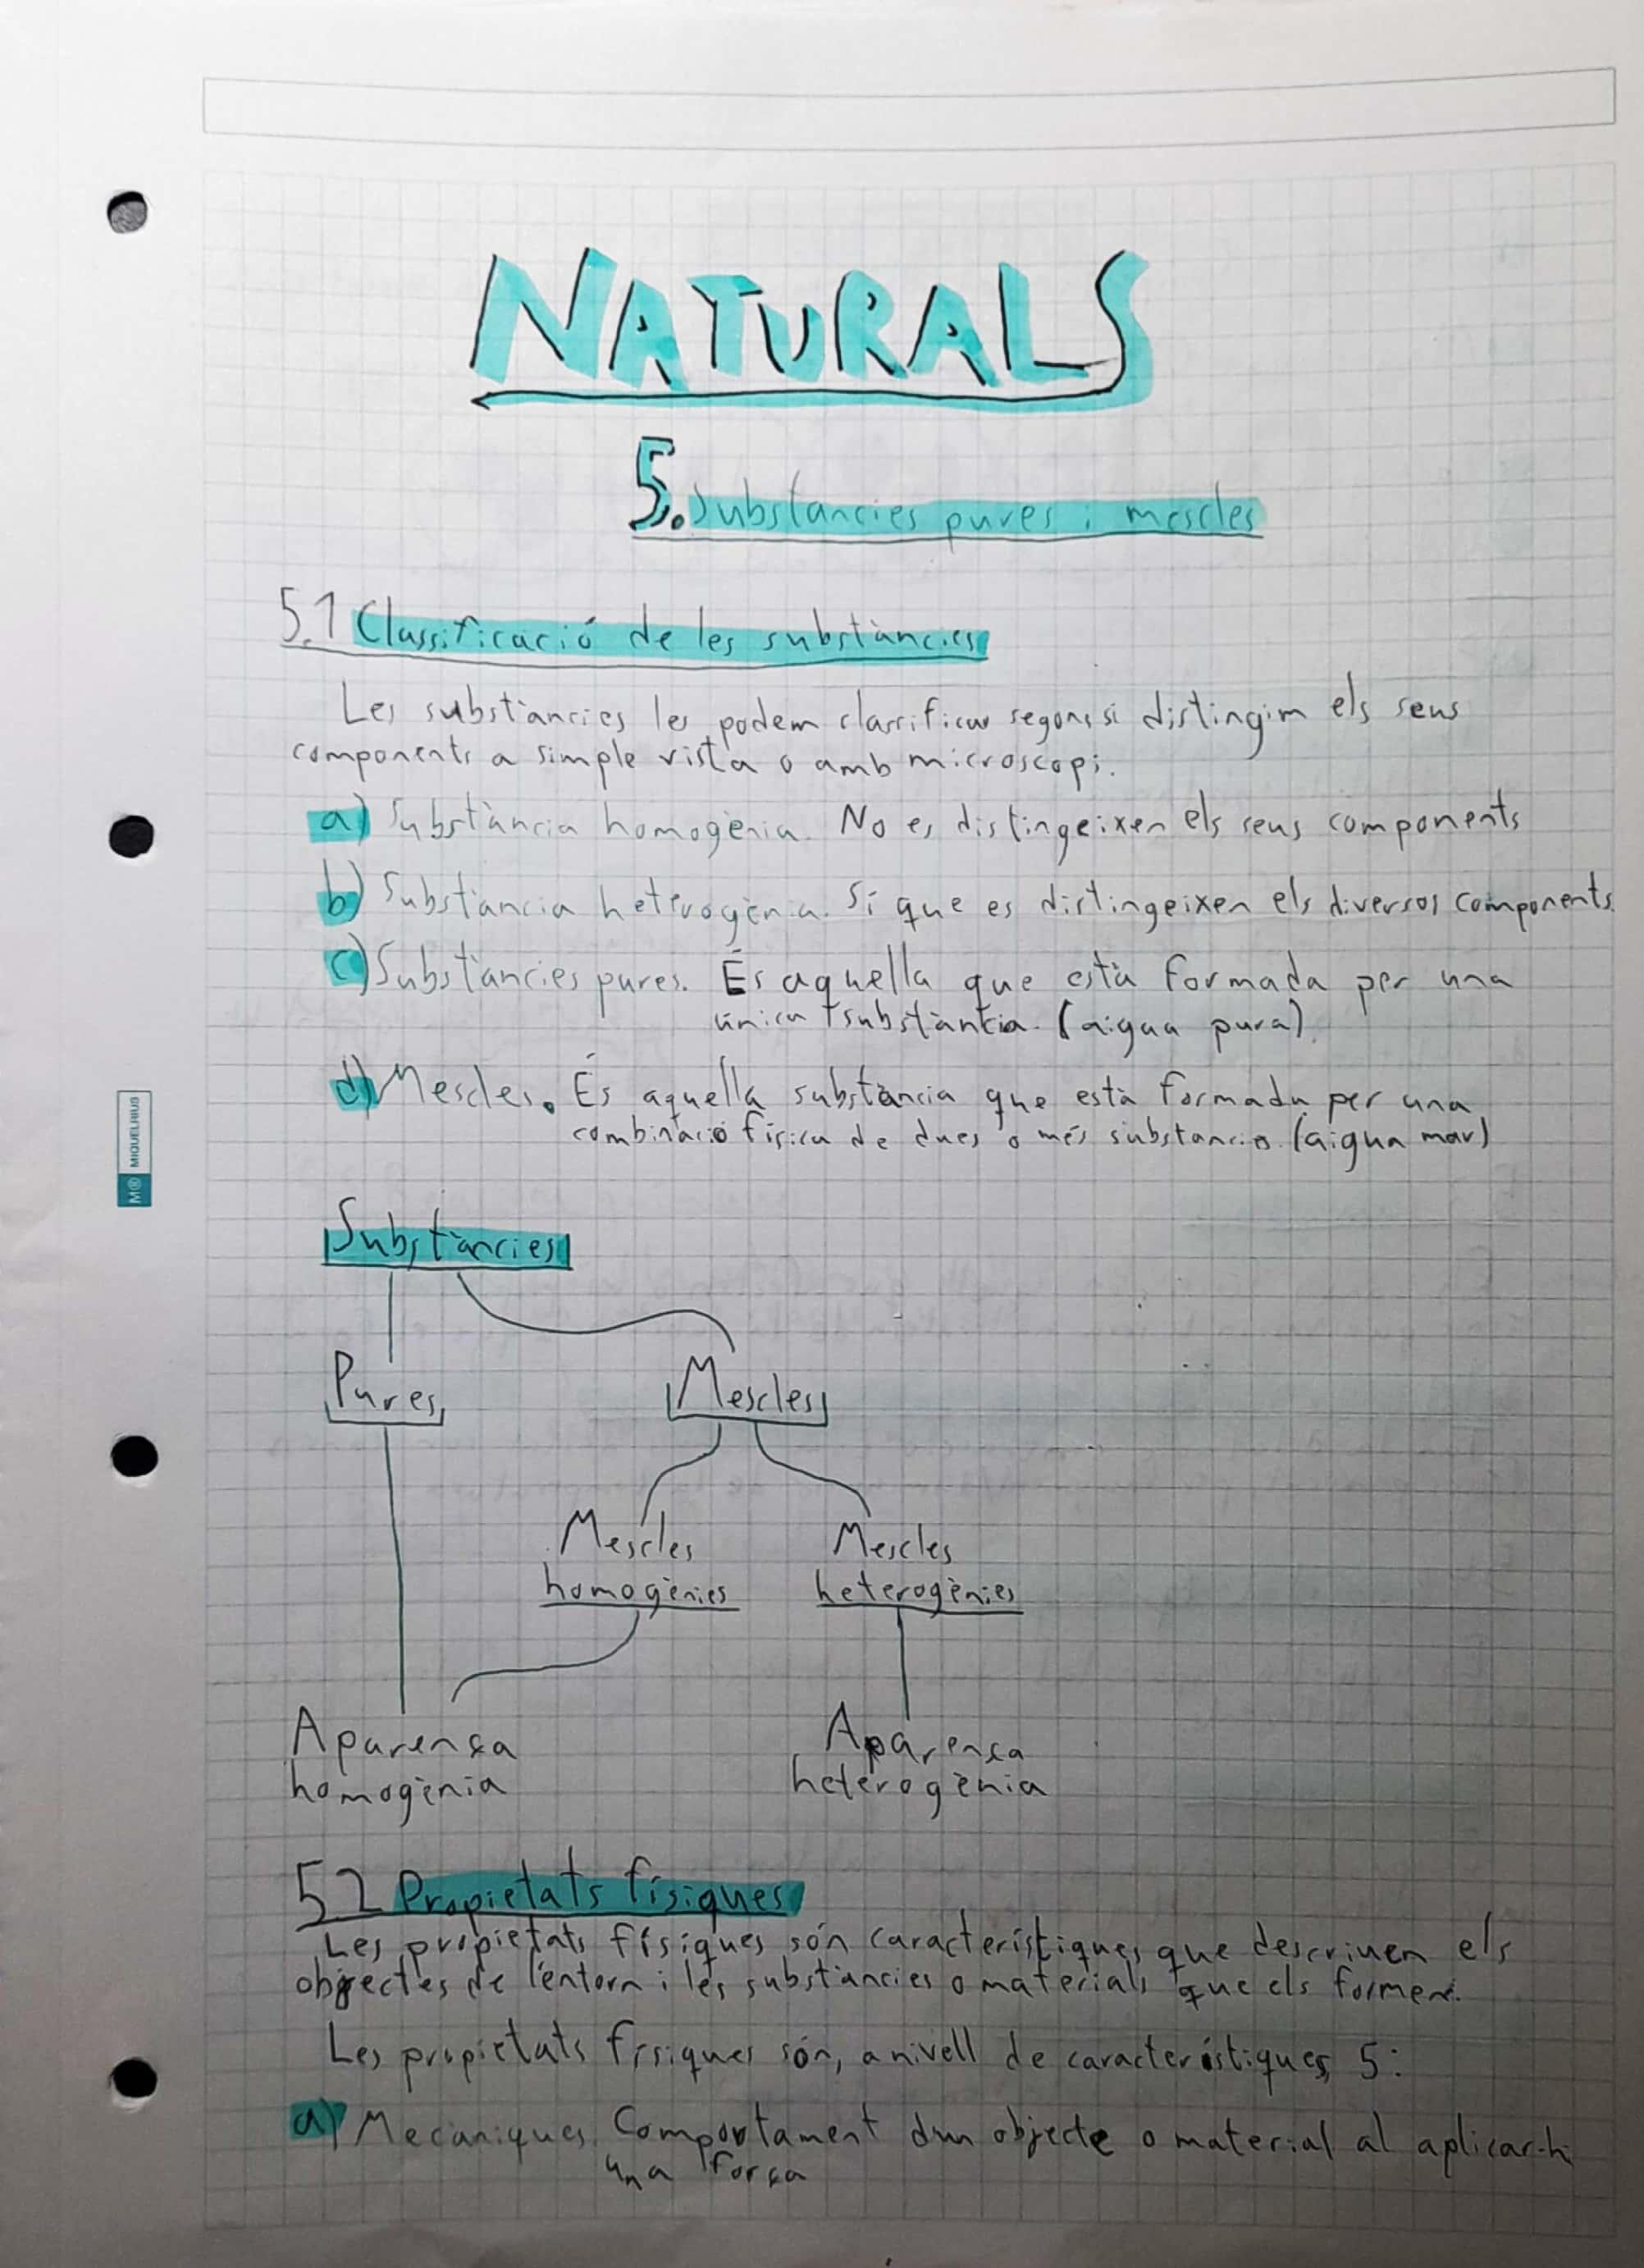 NATURALS
5. Substàncies pures i mescles
5.1 Classificació de les substàncies
Les substàncies les podem classificar segons si distingim els seus
components a simple vista o amb microscopi.
a) Substància homogènia. No es distingeixen els seus components
b) Substància heterogènia. Sí que es distingeixen els diversos components.
c) Substàncies pures. És aquella que està formada per una
única substància. (aigua pura).
d) Mescles. És aquella substància que està formada per una
combinació física de dues o més substancies. (aigua mar)
M® MIQUELRIUS
Substàncies
Pures
Mescles
Mescles
homogènies
Mescles
heterogènies
Aparença
homogènia
Aparença
heterogènia
5.2 Propietats físiques
Les propietats físiques són característiques que descriuen els
objectes de l'entorn i les substàncies o materials que els formen.
Les propietats físiques són, a nivell de característiques, 5:
a) Mecàniques. Comportament d'un objecte o material al aplicar-hi
una força